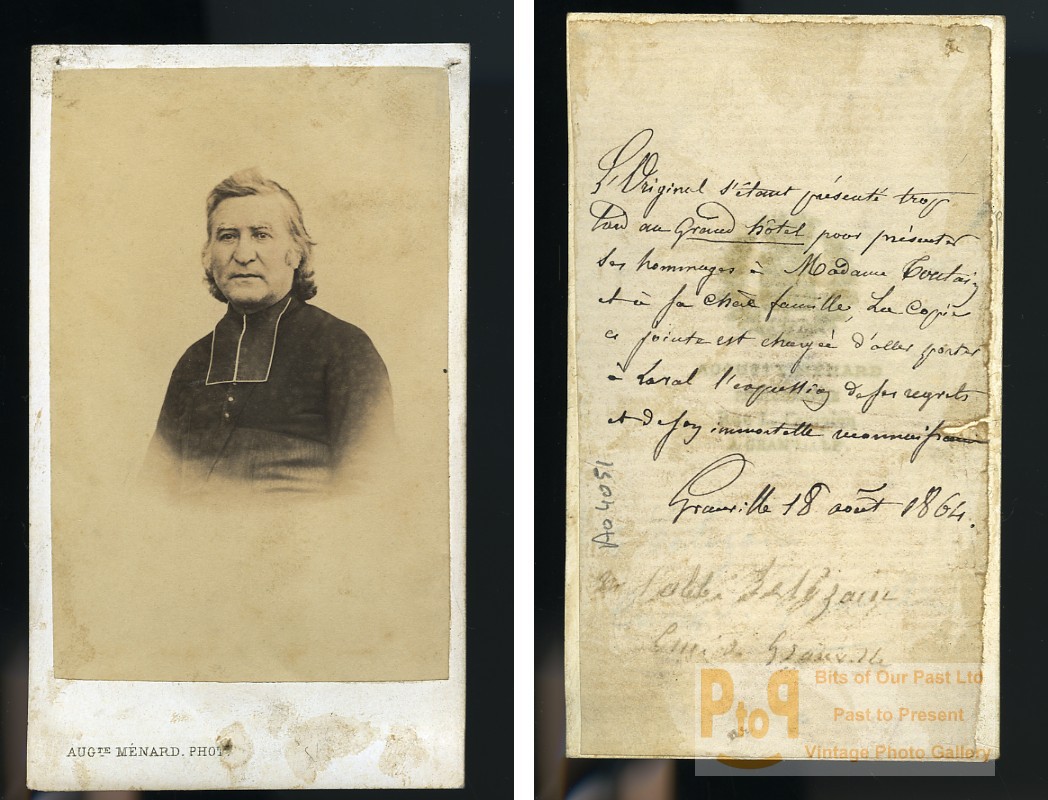 AUGTE MÉNARD. PHOT
L'Original s'étant présenté trop
tard au Grand hôtel pour présenter
ses hommages à Madame Toutain
et à sa chère famille, La Copie
ci jointe est chargée d'aller porter
à Laval l'expression de ses regrets
et de son immortelle reconnaissance
Granville 18 août 1864.
l'abbé
Granville
A04051
PtoP
Bits of Our Past Ltd
Past to Present
Vintage Photo Gallery